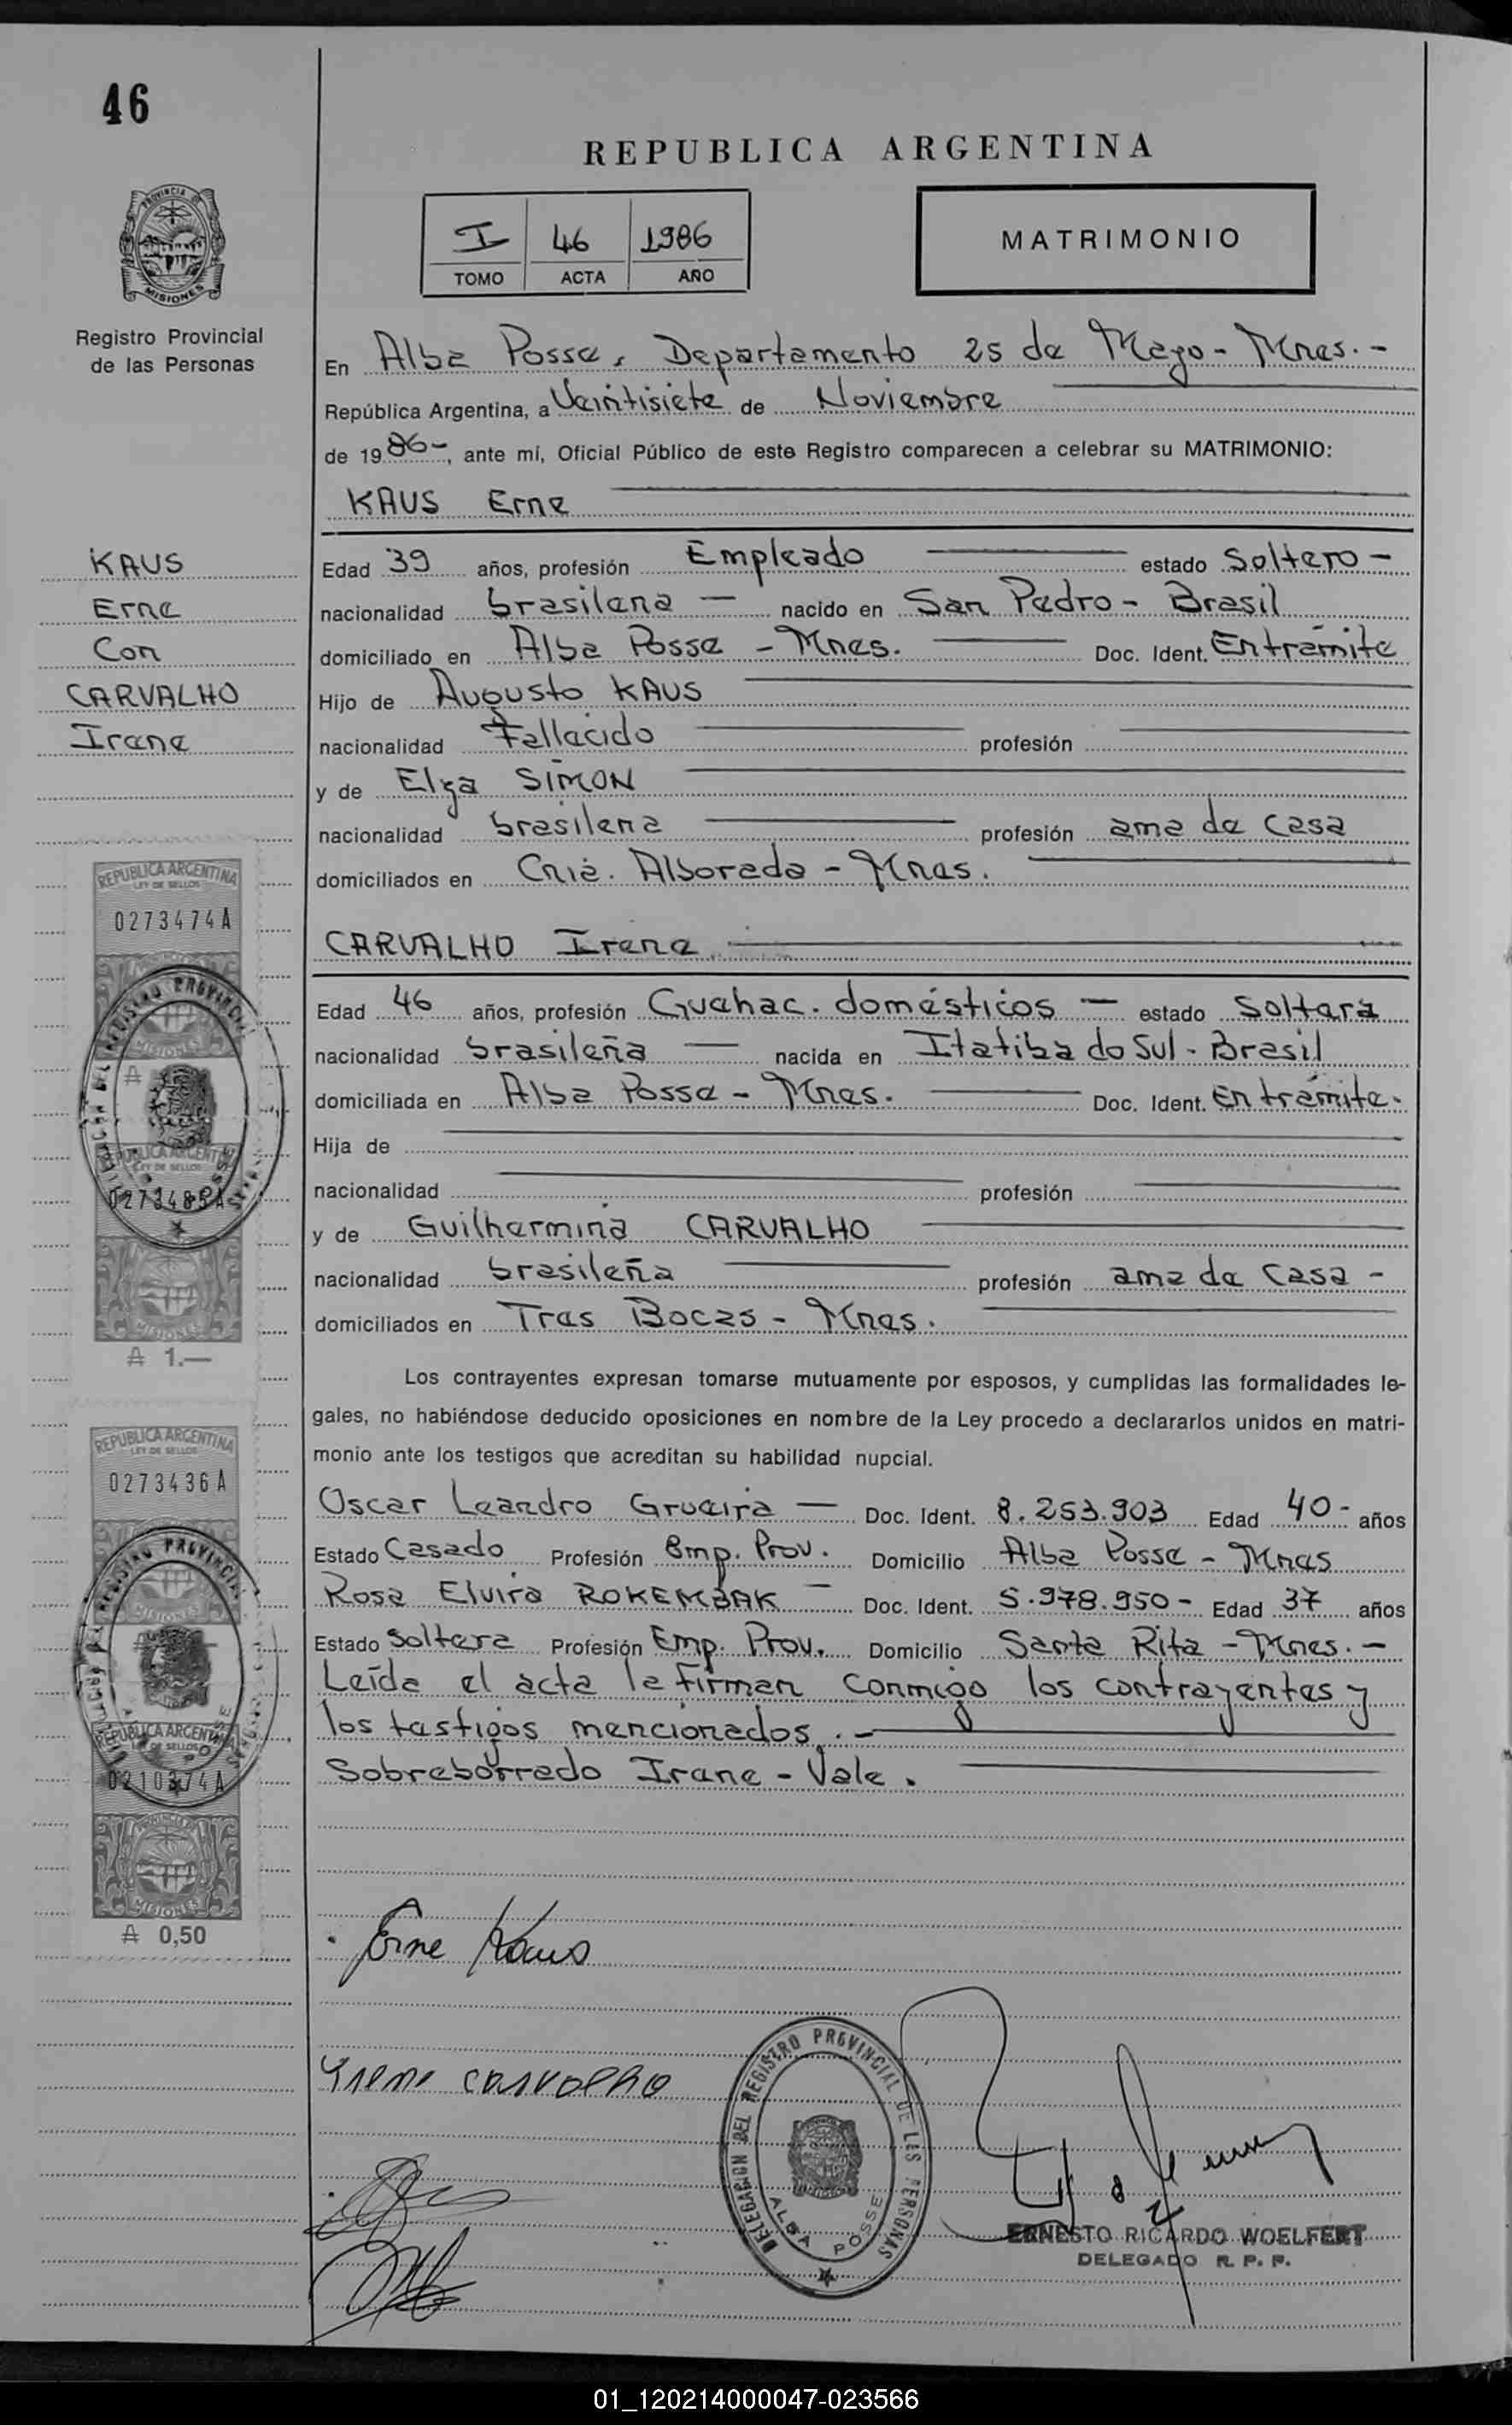 46
REPUBLICA ARGENTINA
I 46 1986
TOMO ACTA AÑO
MATRIMONIO
PROVINCIA DE MISIONES
Registro Provincial
de las Personas
En Alba Posse, Departamento 25 de Mayo - Mnes. -
República Argentina, a Veintisiete de Noviembre
de 1986-, ante mí, Oficial Público de este Registro comparecen a celebrar su MATRIMONIO:
KAUS Erne
KAUS
Erne
Con
CARVALHO
Irene
Edad 39 años, profesión Empleado estado Soltero -
nacionalidad brasilena — nacido en San Pedro - Brasil
domiciliado en Alba Posse - Mnes. Doc. Ident. Entramite
Hijo de Augusto KAUS
nacionalidad Fallacido profesión
y de Elga SIMON
nacionalidad brasilena profesión ama de casa
domiciliados en Cnia. Alborada - Mnes.
CARVALHO Irene
Edad 46 años, profesión Quehac. domésticos — estado Soltera
nacionalidad brasileña — nacida en Itatiba do Sul - Brasil
domiciliada en Alba Posse - Mnes. Doc. Ident. En tramite.
Hija de
nacionalidad profesión
y de Guilhermina CARVALHO
nacionalidad brasileña profesión ama de casa -
domiciliados en Tres Bocas - Mnes.
Los contrayentes expresan tomarse mutuamente por esposos, y cumplidas las formalidades le-
gales, no habiéndose deducido oposiciones en nombre de la Ley procedo a declararlos unidos en matri-
monio ante los testigos que acreditan su habilidad nupcial.
Oscar Leandro Grueira — Doc. Ident. 8.253.903 Edad 40- años
Estado Casado Profesión Emp. Prov. Domicilio Alba Posse - Mnes
Rosa Elvira ROKEMBAK — Doc. Ident. 5.978.950- Edad 37 años
Estado Soltera Profesión Emp. Prov. Domicilio Santa Rita - Mnes. -
Leída el acta la firman conmigo los contrayentes y
los testigos mencionados. -
Sobreborrado Irene - Vale.
REPUBLICA ARGENTINA
LEY DE SELLOS
0273474A
MISIONES
REPUBLICA ARGENTINA
LEY DE SELLOS
0273485A
MISIONES
₳ 1.—
REPUBLICA ARGENTINA
LEY DE SELLOS
0273436A
MISIONES
REPUBLICA ARGENTINA
LEY DE SELLOS
0210374A
MISIONES
₳ 0,50
Erne Kaus
Irene carvalho
DELEGACION DEL REGISTRO PROVINCIAL DE LAS PERSONAS
ALBA POSSE
ERNESTO RICARDO WOELFERT
DELEGADO R. P. P.
01_120214000047-023566